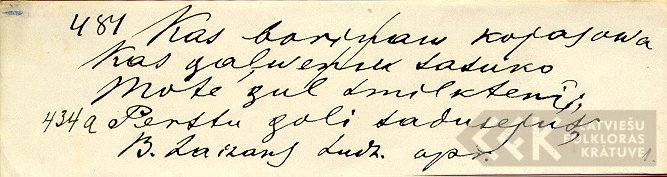 481 Kas boriņam kojas owa
Kas gaļweņu sasuko
Mote guļ smilktenī;
434a Perstu goli sadusejuš,
B. Lazans Ludz. apr.
LATVIEŠU
FOLKLORAS
KRĀTUVE
1.